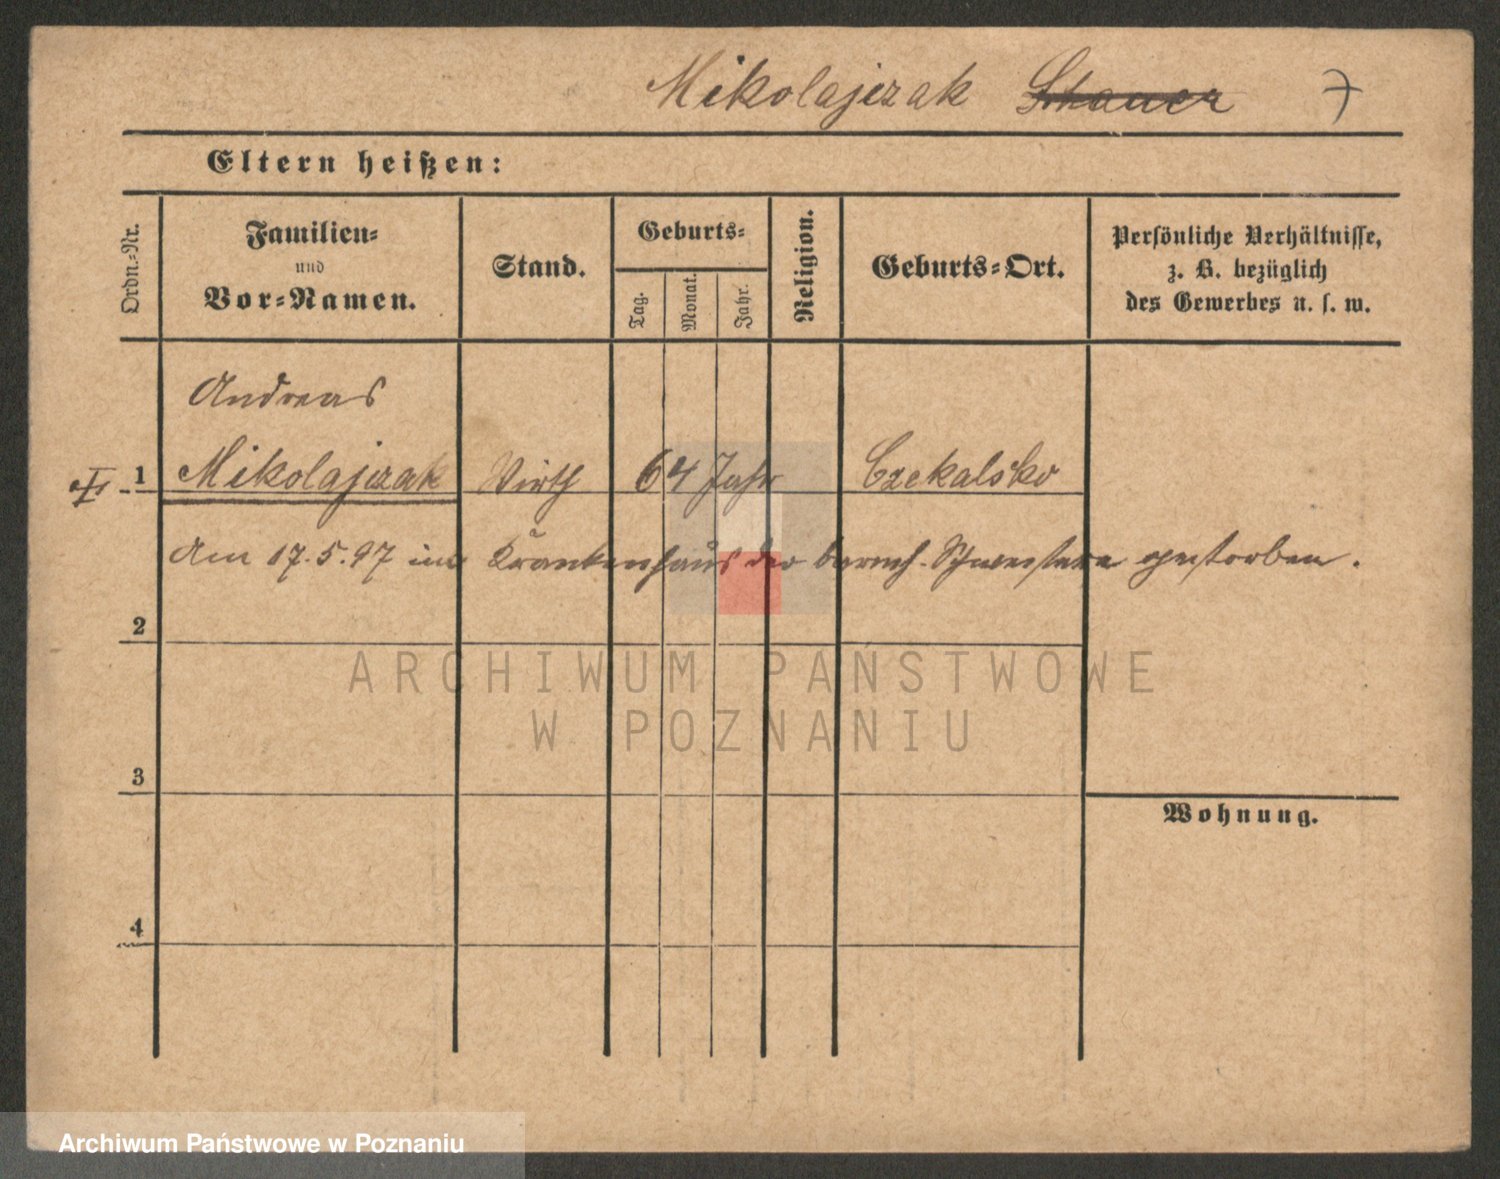 Mikolajczak Schauer
Eltern heißen:
Ordn.-Nr.
Familien-
und
Vor-Namen.
Stand.
Geburts-
Tag.
Monat.
Jahr.
Religion.
Geburts-Ort.
Persönliche Verhältnisse,
z. B. bezüglich
des Gewerbes u. s. w.
Andreas
1 Mikolajczak Wirth 64 Jahr Czekalsko
Am 17.5.97 im Krankenhaus der barmh. Schwestern gestorben.
2
ARCHIWUM PAŃSTWOWE
W POZNANIU
3
Wohnung.
4
Archiwum Państwowe w Poznaniu